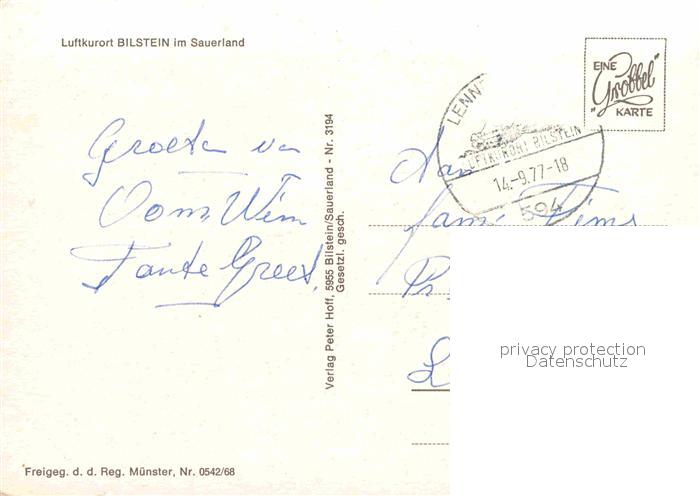 Luftkurort BILSTEIN im Sauerland
EINE
"Grobbel"
KARTE
LENN
LUFTKURORT BILSTEIN
14.-9.77-18
594
Groeten van
Oom Wim
Tante Greet.
Aan
fam. Tims
Verlag Peter Hoff, 5955 Bilstein/Sauerland - Nr. 3194
Gesetzl. gesch.
privacy protection
Datenschutz
Freigeg. d. d. Reg. Münster, Nr. 0542/68